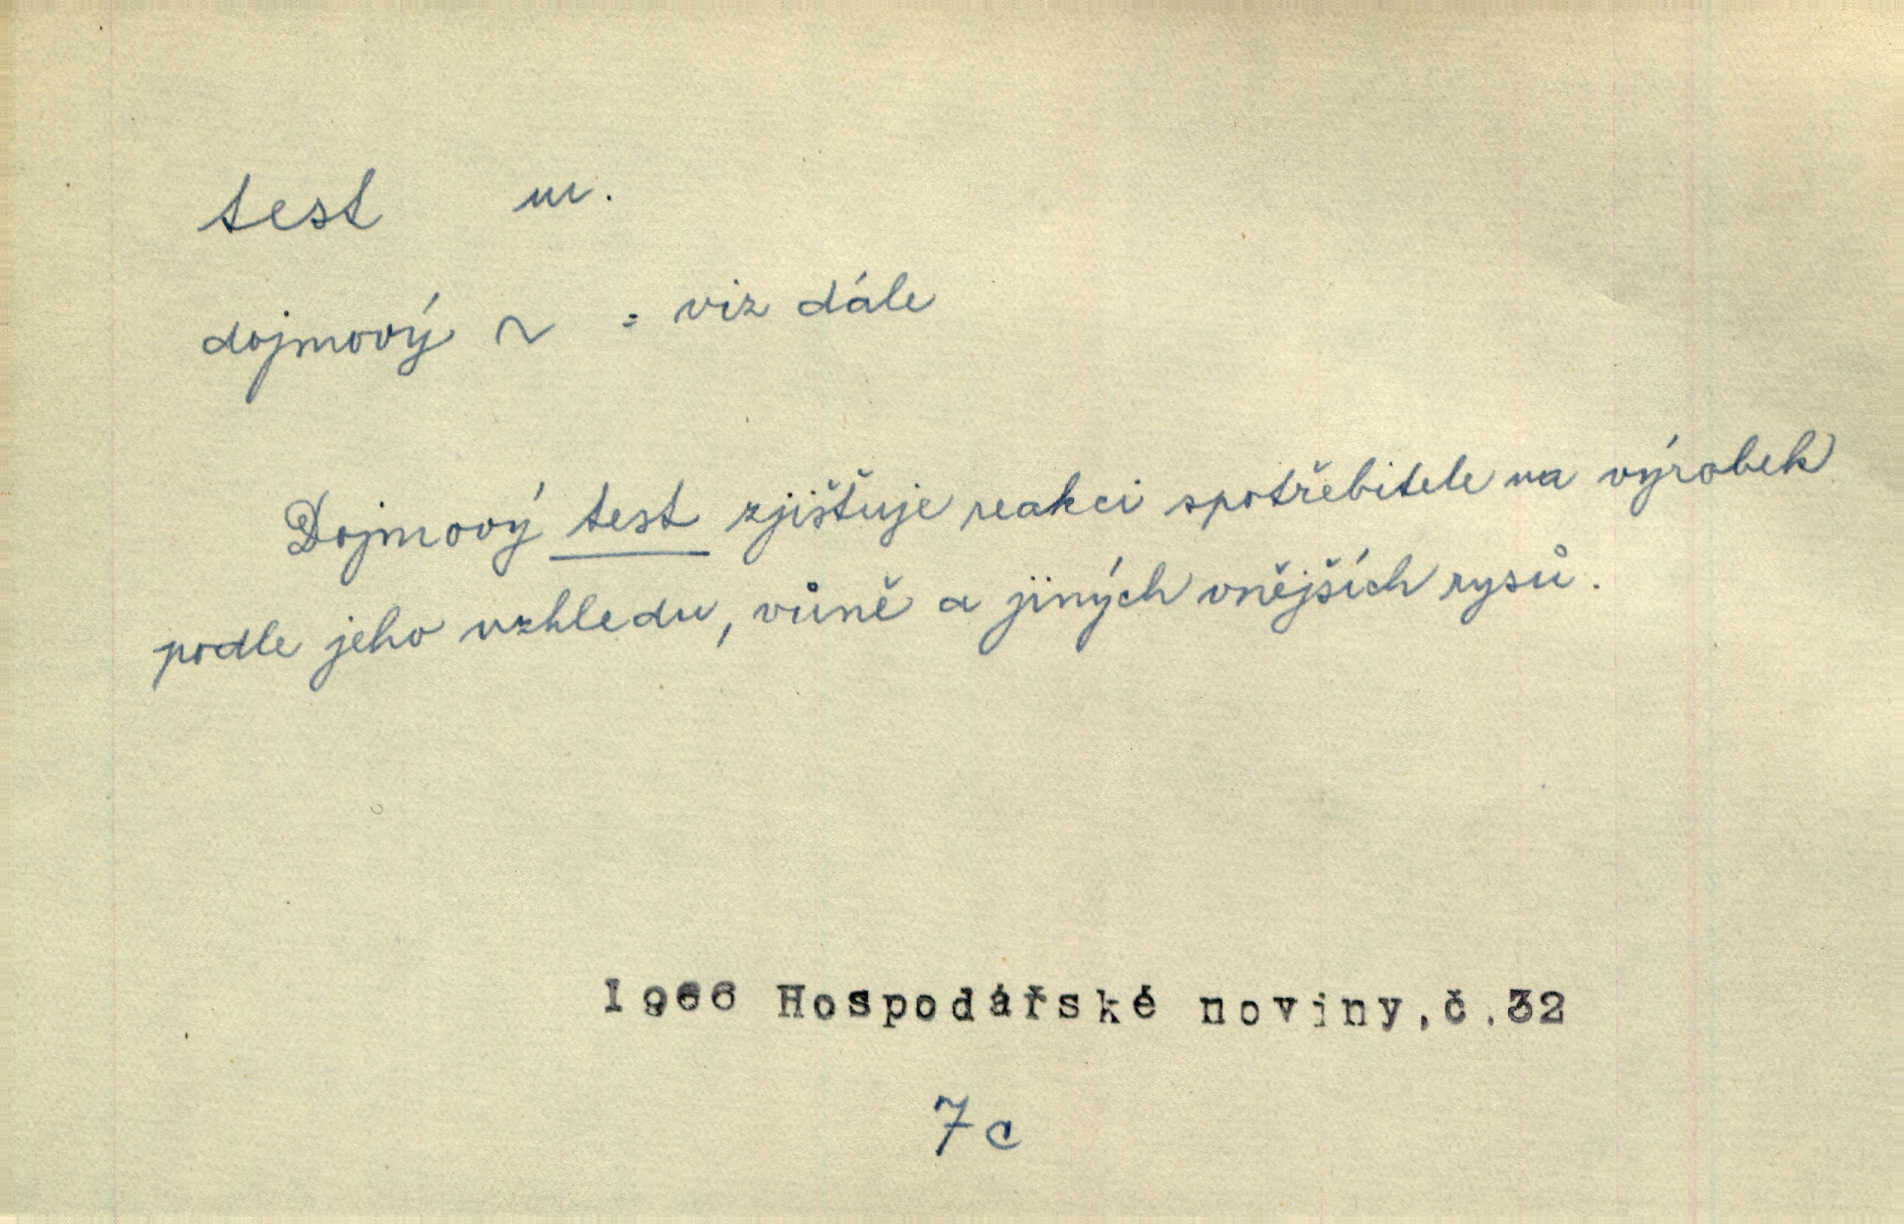 test m.
dojmový ~ = viz dále
Dojmový test zjišťuje reakci spotřebitele na výrobek
podle jeho vzhledu, vůně a jiných vnějších rysů.
1966 Hospodářské noviny, č.32
7c